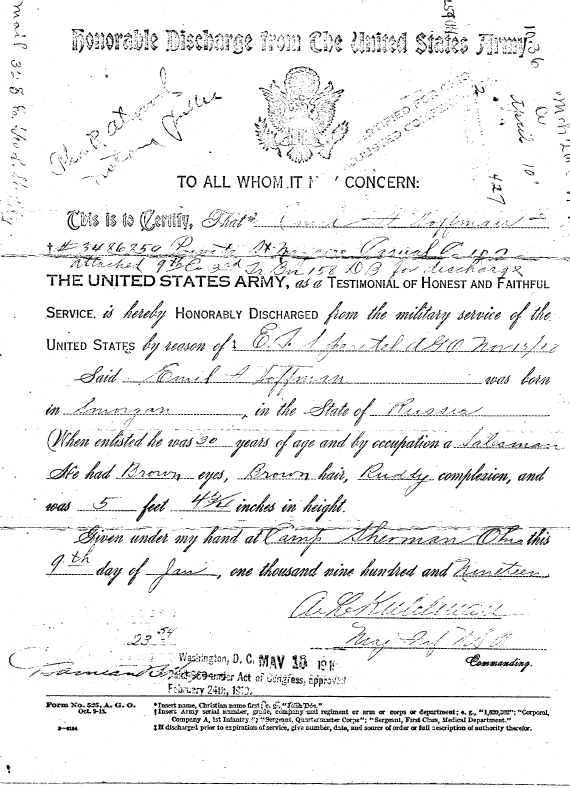 Honorable Discharge from The United States Army
TO ALL WHOM IT M Y CONCERN:
This is to Certify, That* Emil A Hoffman
† # 3486250 Private
attached 9th Co 3rd Tr Bn 158 DB for discharge
THE UNITED STATES ARMY, as a TESTIMONIAL OF HONEST AND FAITHFUL
SERVICE, is hereby HONORABLY DISCHARGED from the military service of the
UNITED STATES by reason of ‡
Said Emil A Hoffman was born
in Smorgan, in the State of Russia
When enlisted he was 30 years of age and by occupation a Salesman
He had Brown eyes, Brown hair, Ruddy complexion, and
was 5 feet 4 3/4 inches in height.
Given under my hand at Camp Sherman Ohio this
9th day of Jan, one thousand nine hundred and Nineteen
Maj Inf USA
Commanding.
23 54
Washington, D. C. MAY 10 191
under Act of Congress, approved
February 24th, 1919.
Form No. 525, A. G. O.
Oct. 9-18.
3-4164
*Insert name, Christian name first; e. g., "John Doe."
†Insert Army serial number, grade, company and regiment or arm or corps or department; e. g., "1,620,302"; "Corporal,
Company A, 1st Infantry"; "Sergeant, Quartermaster Corps"; "Sergeant, First Class, Medical Department."
‡If discharged prior to expiration of service, give number, date, and source of order or full description of authority therefor.
427
April 10